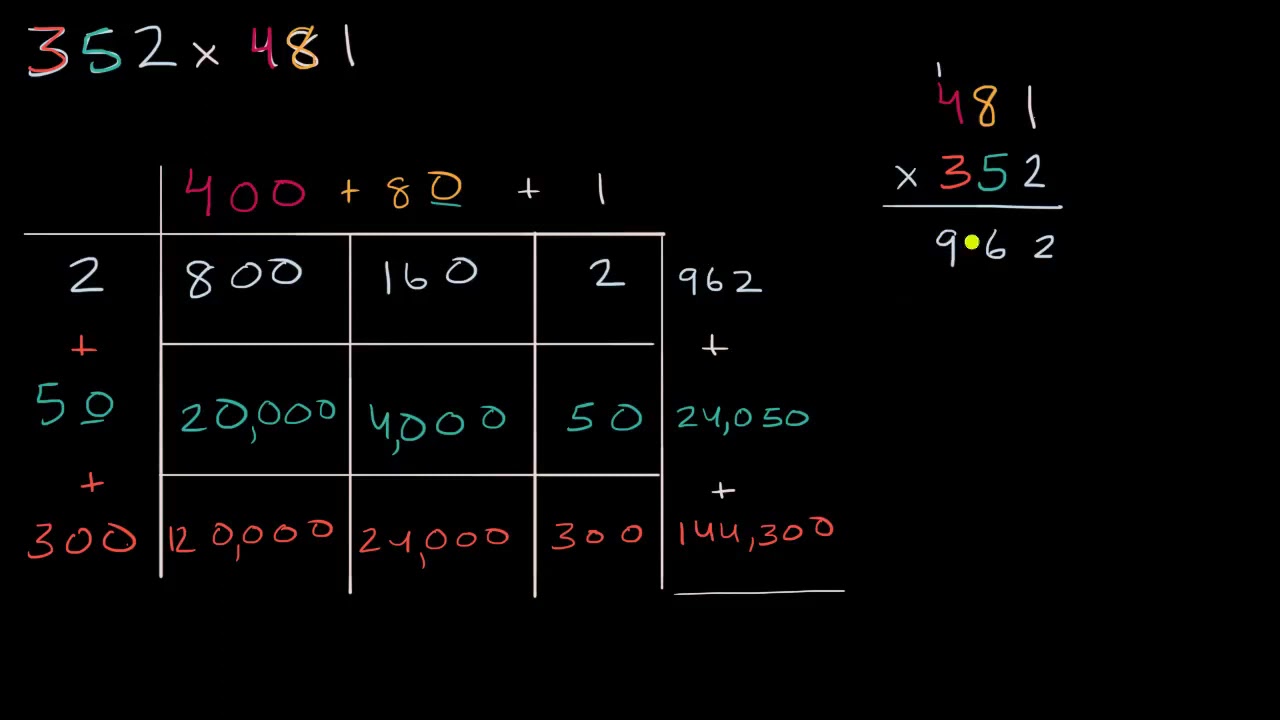 352 × 481
400 + 80 + 1
2 800 160 2 962
+ +
50 20,000 4,000 50 24,050
+ +
300 120,000 24,000 300 144,300
1
481
× 352
962